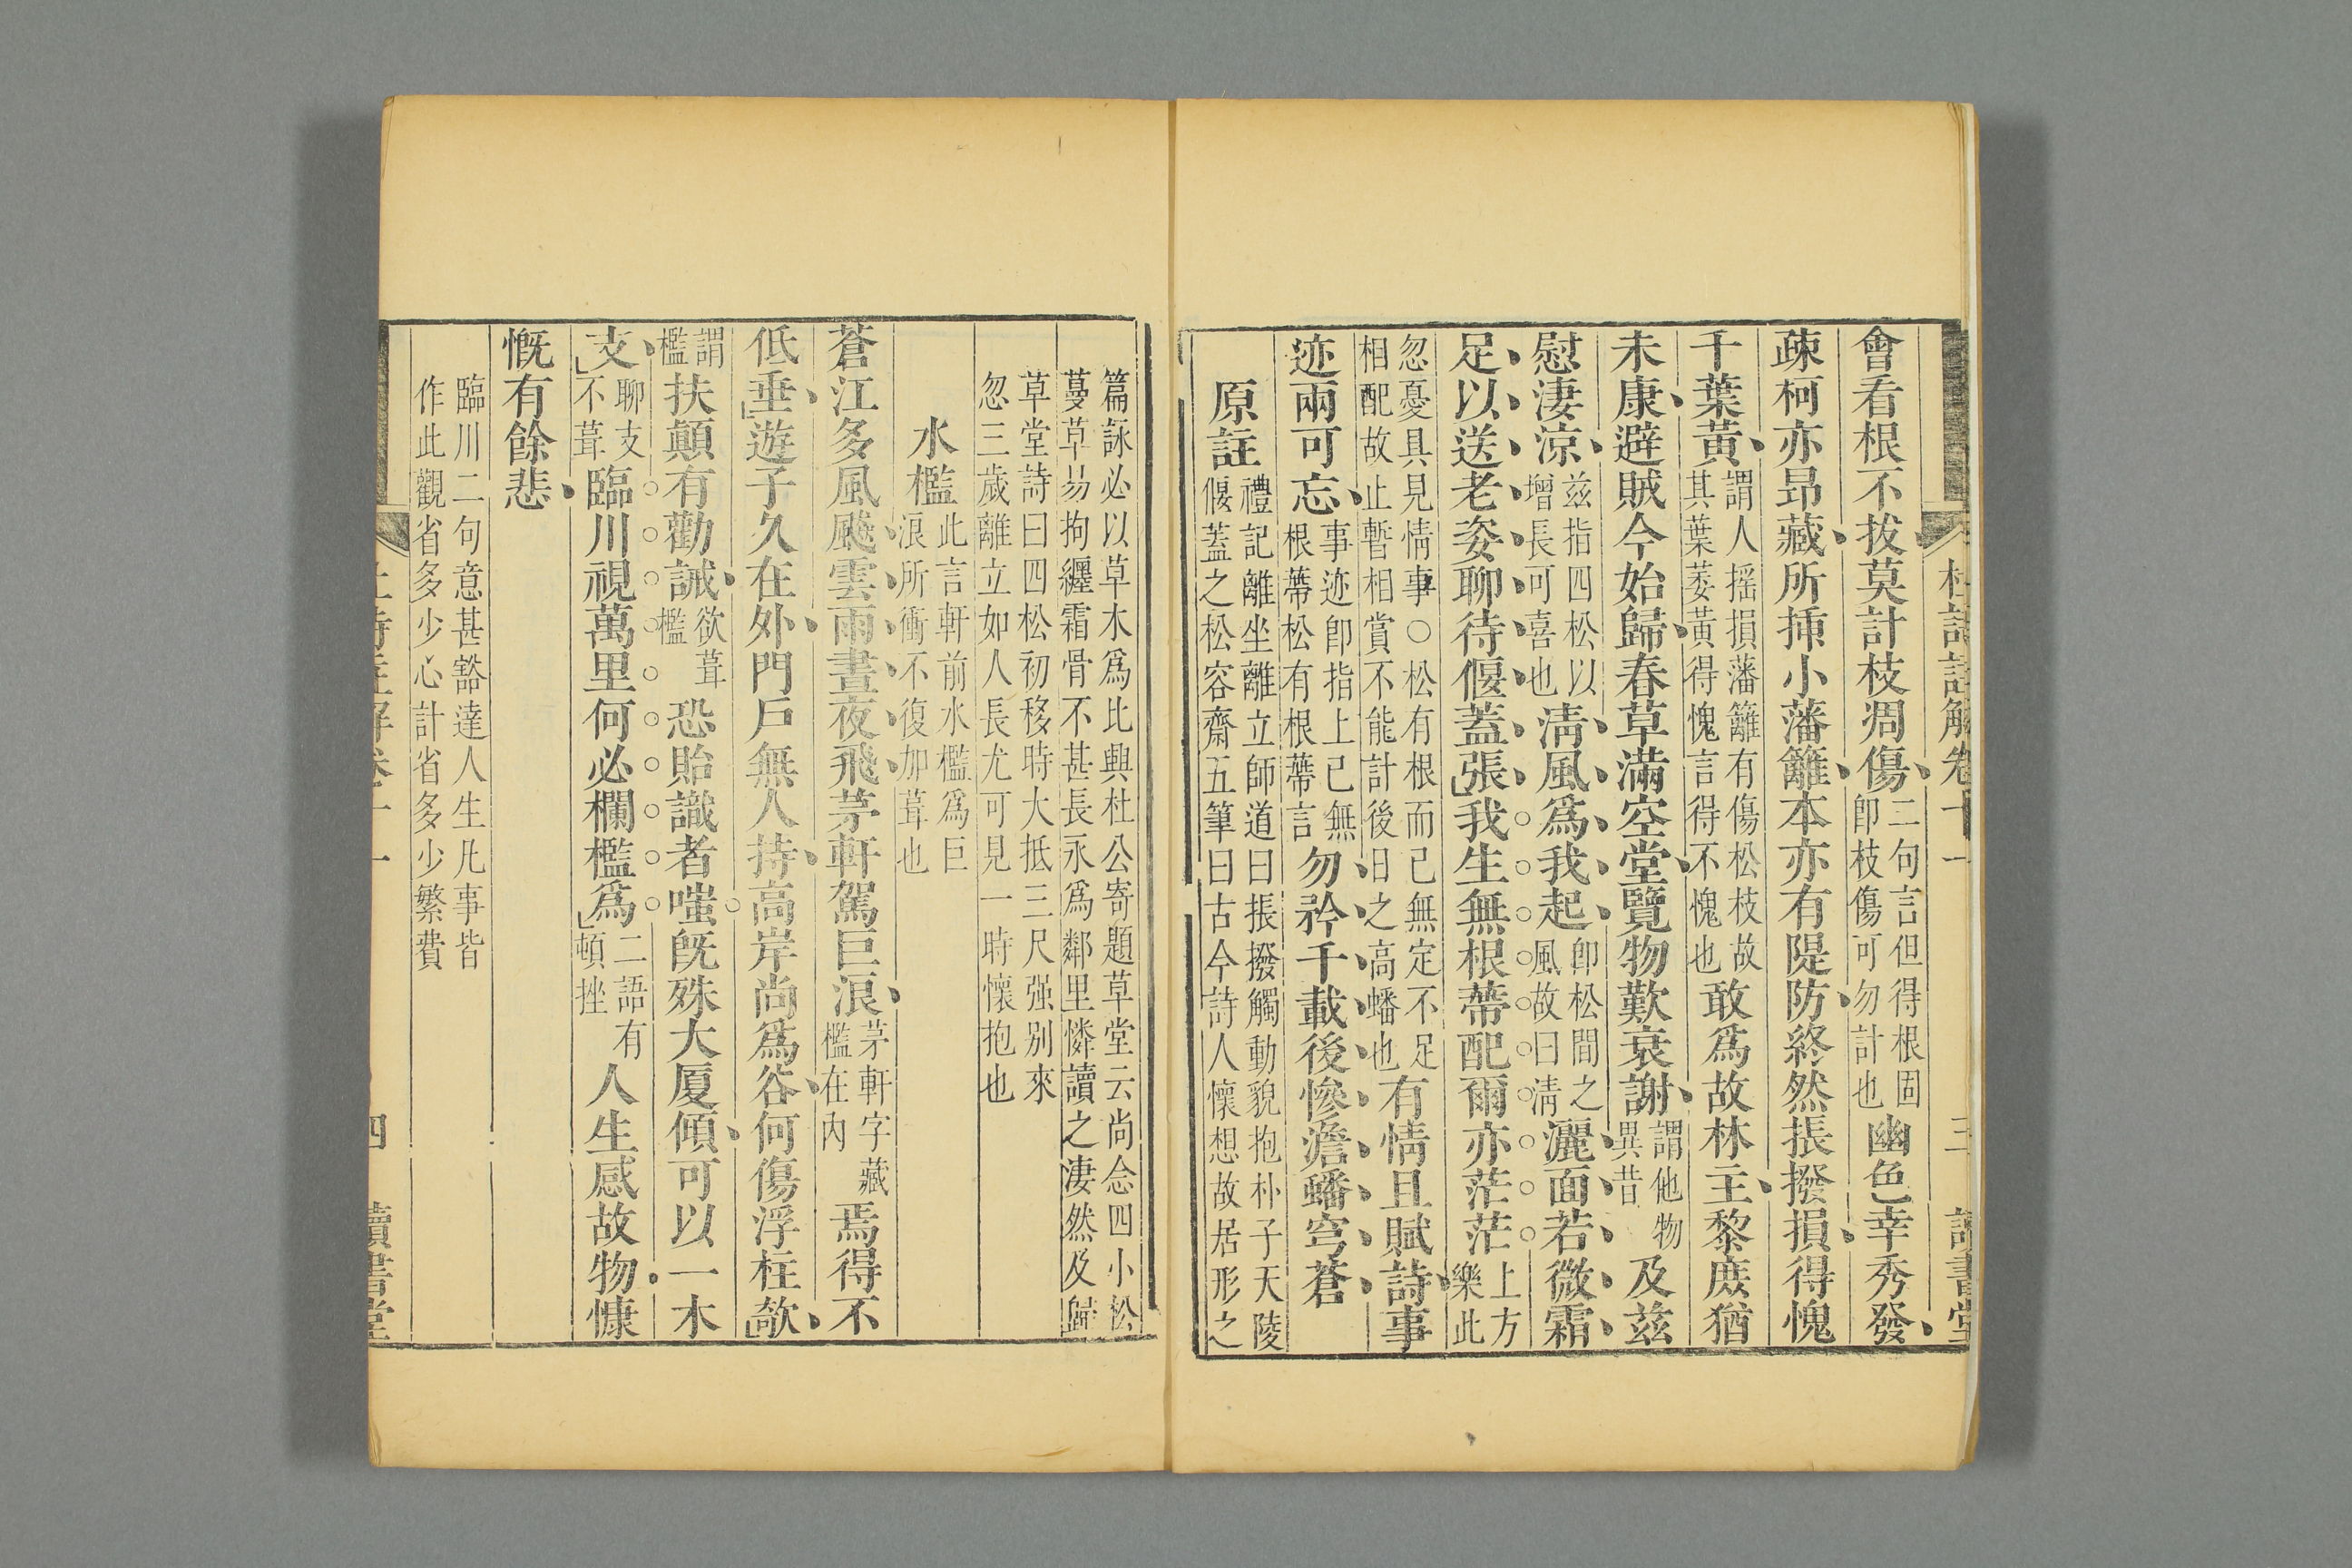 會看根不拔莫計枝凋傷二句言但得根固卽枝傷可勿計也幽色幸秀發
疎柯亦昂藏所揷小藩籬本亦有隄防終然掁撥損得愧
千葉黃謂人摇損藩籬有傷松枝故其葉萎黃得愧言得不愧也敢爲故林主黎庶猶
未康避賊今始歸春草滿空堂覽物歎衰謝謂他物異昔及茲
慰淒涼茲指四松以增長可喜也淸風爲我起卽松間之風故曰淸灑面若微霜
足以送老姿聊待偃蓋張我生無根蔕配爾亦茫茫上方樂此
忽憂具見情事○松有根而己無定不足相配故止暫相賞不能計後日之高蟠也有情且賦詩事
迹兩可忘事迹卽指上已無根蔕松有根蔕言勿矜千載後慘澹蟠穹蒼
原註禮記離坐離立師道曰掁撥觸動貌抱朴子天陵偃蓋之松容齋五筆曰古今詩人懷想故居形之
篇詠必以草木爲比興杜公寄題草堂云尚念四小松蔓草易拘纏霜骨不甚長永爲鄰里憐讀之淒然及歸
草堂詩曰四松初移時大抵三尺强別來忽三歲離立如人長尤可見一時懷抱也
水檻此言軒前水檻爲巨浪所衝不復加葺也
蒼江多風飈雲雨晝夜飛茅軒駕巨浪茅軒字藏檻在內焉得不
低垂遊子久在外門戶無人持高岸尚爲谷何傷浮柱欹
謂檻扶顛有勸誡欲葺檻恐貽識者嗤旣殊大厦傾可以一木
支聊支不葺臨川視萬里何必欄檻爲二語有頓挫人生感故物慷
慨有餘悲
臨川二句意甚豁達人生凡事皆作此觀省多少心計省多少繁費
四
讀書堂